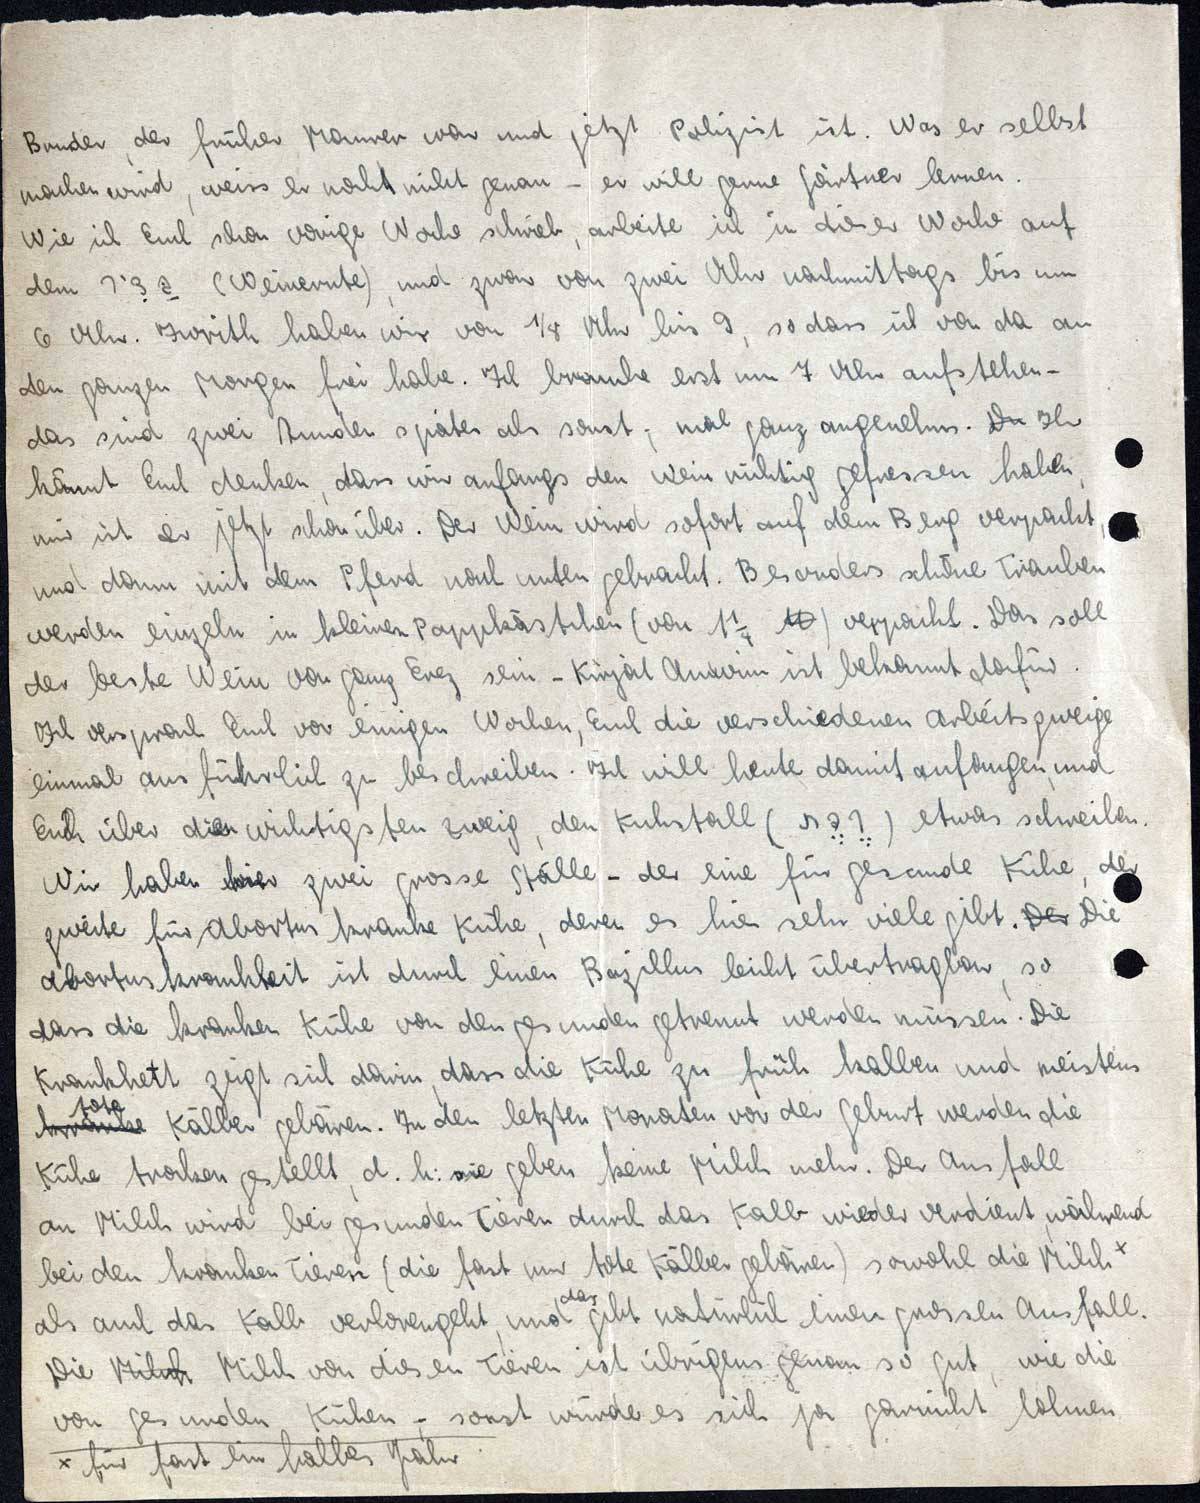 Bruder, der früher Maurer war und jetzt Polizist ist. Was er selbst
machen wird, weiss er nocht nicht genau – er will gerne Gärtner lernen.
Wie ich Euch schon vorige Woche schrieb, arbeite ich in dieser Woche auf
dem (Weinernte), und zwar von zwei Uhr nachmittags bis um
6 Uhr. Iwrith haben wir von 1/4 Uhr bis 9, sodass ich von da an
den ganzen Morgen frei habe. Ich brauche erst um 7 Uhr aufstehen –
das sind zwei Stunden später als sonst, mal ganz angenehm. Du Ihr
könnt Euch denken, dass wir anfangs den Wein richtig gefressen haben,
mir ist er jetzt schon über. Der Wein wird sofort auf dem Berg verpackt,
und dann mit dem Pferd nach unten gebracht. Besonders schöne Trauben
werden einzeln in kleinen Pappkästchen (von 1 1/4 ℔) verpackt. Das soll
der beste Wein von ganz Erez sein – Kirjat Anavim ist bekannt dafür.
Ich versprach Euch vor einigen Wochen, Euch die verschiedenen Arbeitszweige
einmal ausführlich zu beschreiben. Ich will heute damit anfangen, und
Euch über den wichtigsten Zweig, den Kuhstall ( ) etwas schreiben.
Wir haben hier zwei grosse Ställe – der eine für gesunde Kühe, der
zweite für Abortus kranke Kühe, deren es hier sehr viele gibt. Der Die
Abortuskrankheit ist durch einen Bazillus leicht übertragbar, so
dass die kranken Kühe von den gesunden getrennt werden müssen. Die
Krankheit zeigt sich darin, dass die Kühe zu früh kalben und meistens
kranke tote Kälber gebären. In den letzten Monaten vor der Geburt werden die
Kühe trocken gestellt, d. h: sie geben keine Milch mehr. Der Ausfall
an Milch wird bei gesunden Tieren durch das Kalb wieder verdient, während
bei den kranken Tieren (die fast nur tote Kälber gebären) sowohl die Milch ×
als auch das Kalb verlorengeht, und das gibt natürlich einen grossen Ausfall.
Die Milch Milch von diesen Tieren ist übrigens genau so gut, wie die
von gesunden Kühen – sonst würde es sich ja garnicht lohnen
× für fast ein halbes Jahr